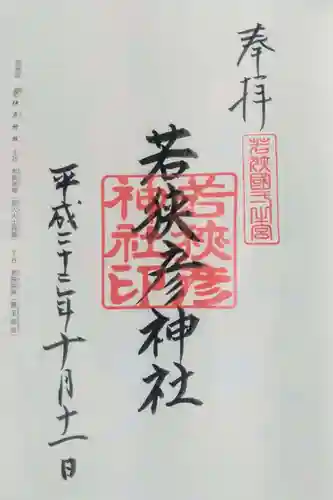 奉拝
若狭國一之宮
若狭彦神社
若狭彦
神社印
平成二十二年十月十一日